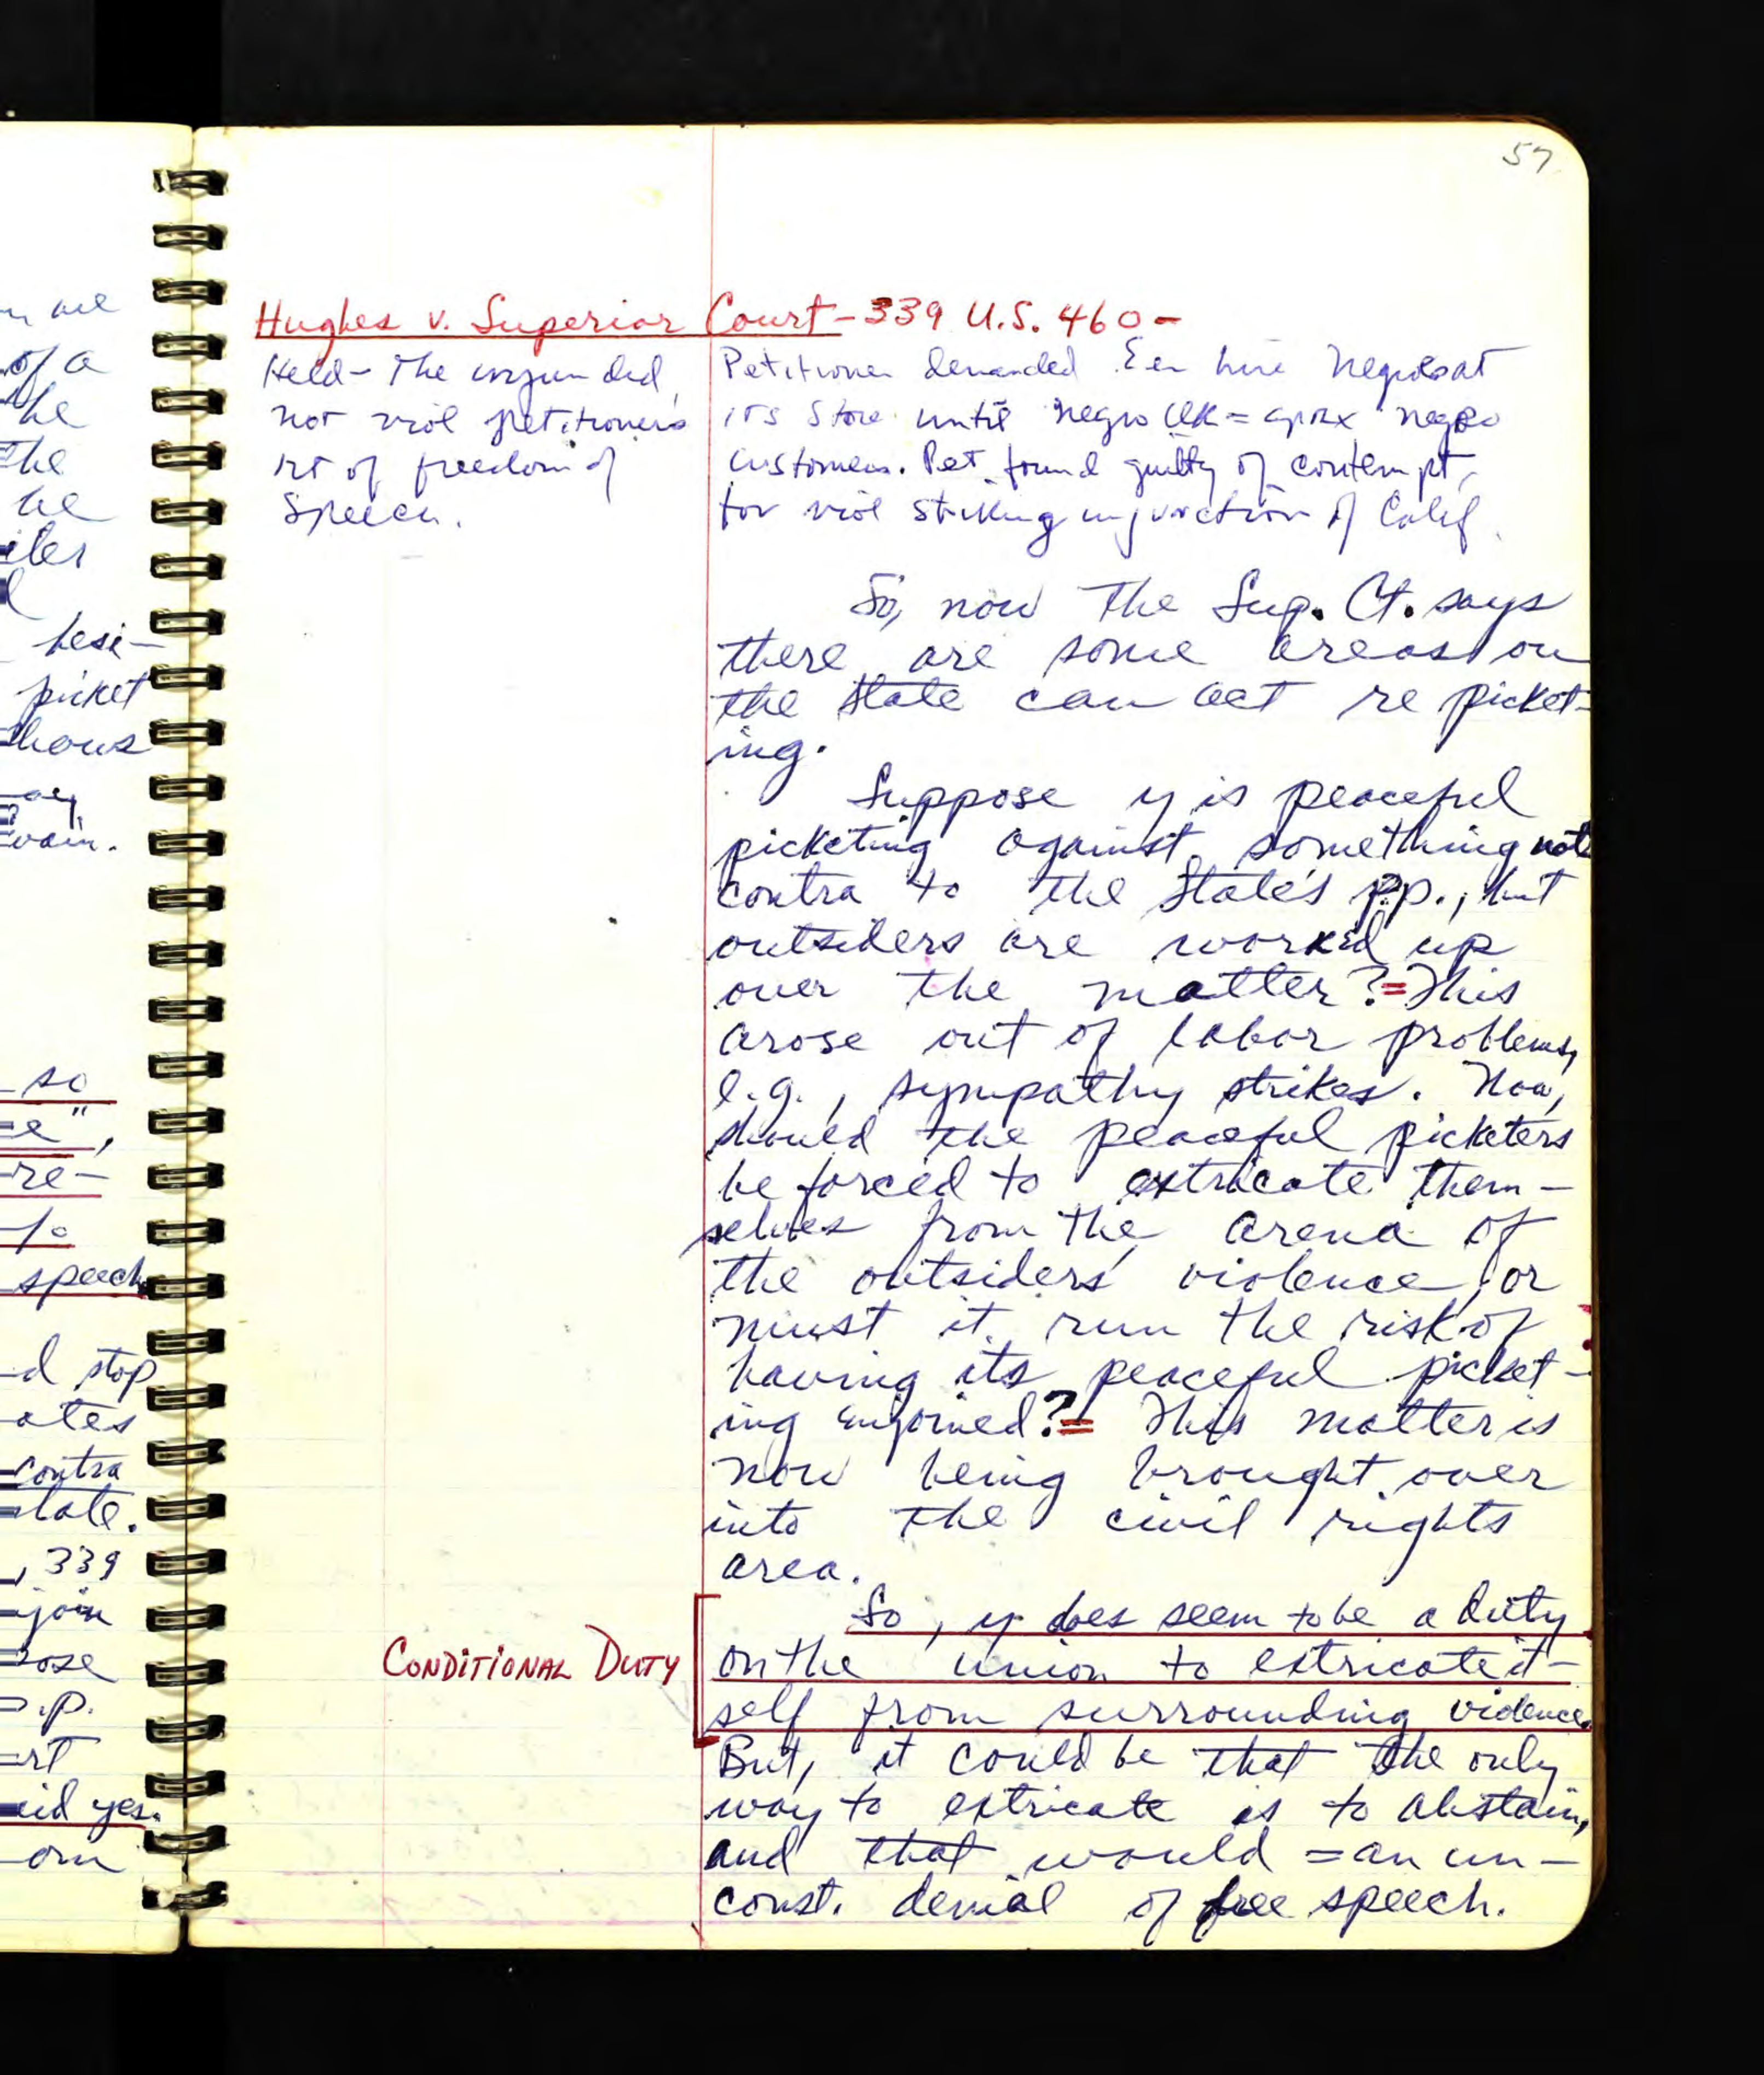 57
Hughes v. Superior Court - 339 U.S. 460 -
Held - The injun did
not viol petitioner's
rt of freedom of
Speech.
Petitioner demanded Eer hire Negroes at
its Store until negro clk = aprx negro
customers. Pet found guilty of contempt,
for viol striking injunction of Calif.
So, now the Sup. Ct. says
there are some areas on
the State can act re picket-
ing.
Suppose y is peaceful
picketing against something not
contra to the State's p.p., but
outsiders are worked up
over the matter? = This
arose out of labor problems,
e.g., sympathy strikes. Now,
should the peaceful picketers
be forced to extricate them-
selves from the arena of
the outsiders' violence, or
must it run the risk of
having its peaceful picket-
ing enjoined? = This matter is
now being brought over
into the civil rights
area.
CONDITIONAL DUTY
So, y does seem to be a duty
on the union to extricate it-
self from surrounding violence.
But, it could be that the only
way to extricate is to abstain,
and that would = an un-
const. denial of free speech.
of a
he
the
he
hesi-
picket
shows
vain.
so
re-
speech
d stop
ates
contra
tate.
, 339
join
pose
p.p.
rt
yes.
om